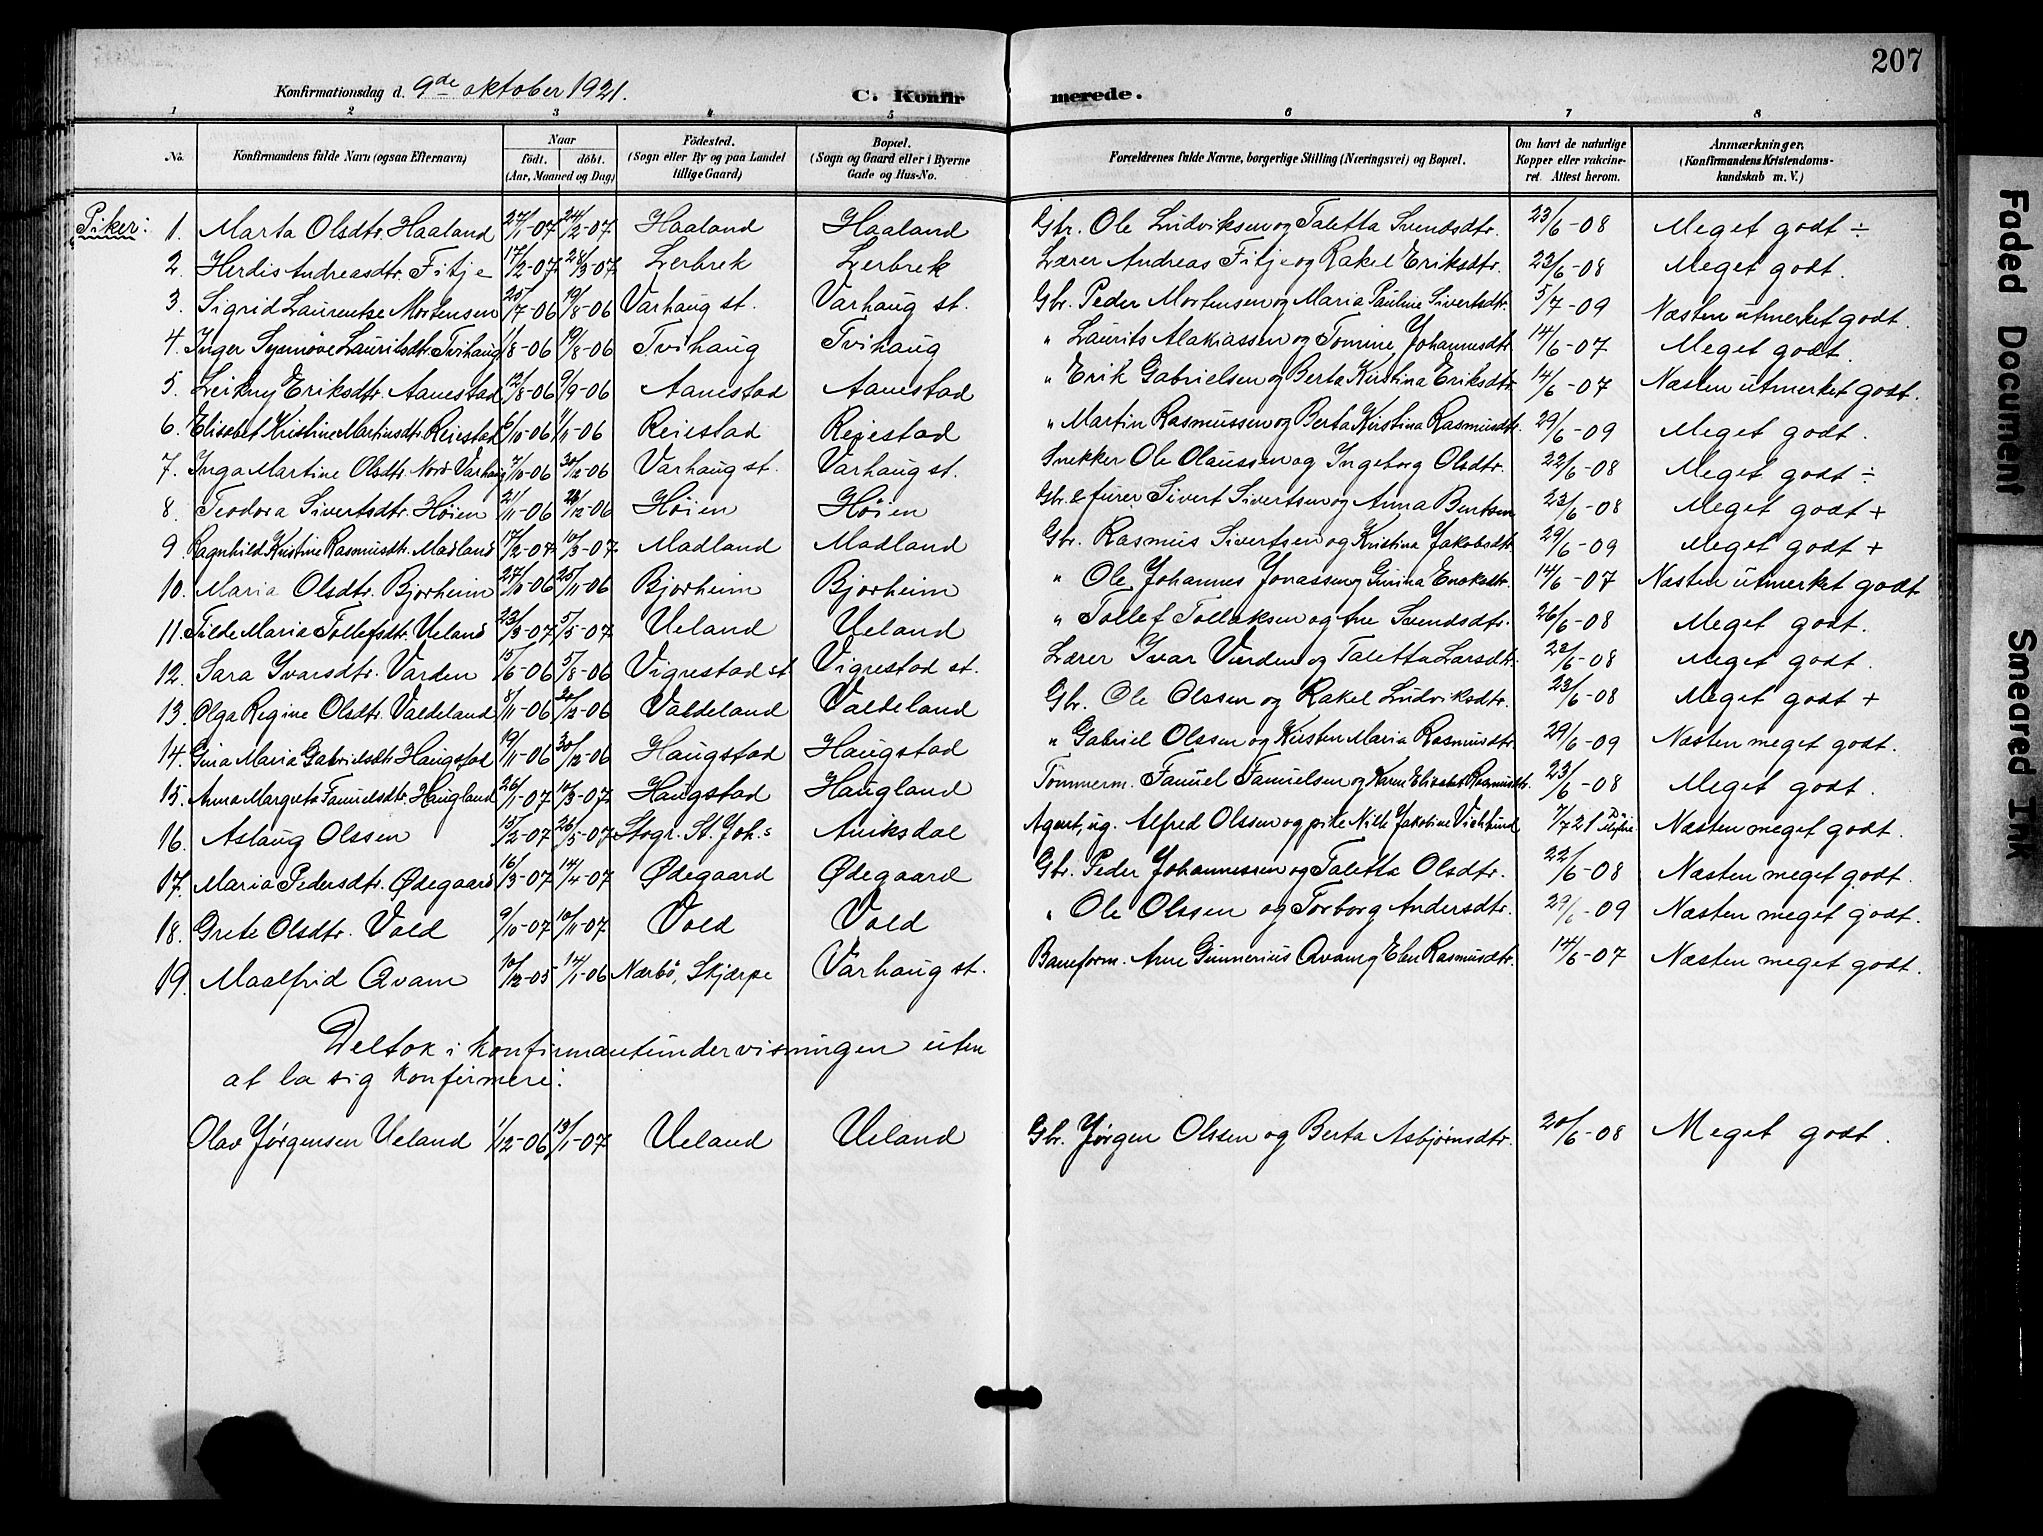 207
Konfirmationsdag d. 9de oktober 1921.
C. Konfirmerede.
1 2 3 4 5 6 7 8
No. | Konfirmandens fulde Navn (ogsaa Efternavn) | Naar født. døbt. (Aar, Maaned og Dag) | Fødested. (Sogn eller By og paa Landet tillige Gaard) | Bopæl. (Sogn og Gaard eller i Byerne Gade og Hus-No. | Forældrenes fulde Navne, borgerlige Stilling (Næringsvei) og Bopæl. | Om havt de naturlige Kopper eller vakcineret. Attest herom. | Anmærkninger. (Konfirmandens Kristendomskundskab m. V.)
Piker:
1. Marta Olsdtr. Haaland 27/1-07 24/2-07 Haaland Haaland Gbr. Ole Ludviksen og Taletta Svendsdtr. 23/6-08 Meget godt ÷
2. Herdis Andreasdtr. Fitje 17/2-07 28/3-07 Lerbrek Lerbrek Lærer Andreas Fitje og Rakel Eriksdtr. 23/6-08 Meget godt.
3. Sigrid Laurentse Mortensen 25/7-06 19/8-06 Varhaug st. Varhaug st. Gbr. Peder Mortensen og Maria Pauline Sivertsdtr. 5/7-09 Næsten utmerket godt.
4. Inger Synnøve Lauritsdtr. Tvihaug 1/8-06 19/8-06 Tvihaug Tvihaug " Laurits Malakiassen og Tomine Johannesdtr. 14/6-07 Meget godt.
5. Leikny Eriksdtr. Aanestad 12/8-06 9/9-06 Aanestad Aanestad " Erik Gabrielsen og Berta Kristina Eriksdtr. 14/6-07 Næsten utmerket godt.
6. Elisabet Kristine Martinsdtr. Reiestad 6/10-06 4/11-06 Reiestad Reiestad " Martin Rasmussen og Berta Kristina Rasmusdtr. 29/6-09 Meget godt.
7. Inga Martine Olsdtr. Nord Varhaug 7/10-06 30/12-06 Varhaug st. Varhaug st. Snekker Ole Olaussen og Ingeborg Olsdtr. 22/6-08 Meget godt ÷
8. Teodora Sivertsdtr. Høien 21/11-06 26/12-06 Høien Høien Gbr. & furer Sivert Sivertsen og Anna Bentsen 23/6-08 Meget godt +
9. Ragnhild Kristine Rasmusdtr. Madland 17/2-07 10/3-07 Madland Madland Gbr. Rasmus Sivertsen og Kristina Jakobsdtr. 29/6-09 Meget godt +
10. Maria Olsdtr. Bjorheim 27/10-06 25/11-06 Bjorheim Bjorheim " Ole Johannes Jonassen og Gurina Enoksdtr. 14/6-07 Næsten utmerket godt
11. Tilde Maria Tollefsdtr. Ueland 23/3-07 5/5-07 Ueland Ueland " Tollef Tollaksen og Ane Svendsdtr. 26/6-08 Meget godt.
12. Sara Ivarsdtr. Varden 15/6-06 5/8-06 Vigrestad st. Vigrestad st. Lærer Ivar Varden og Taletta Larsdtr. 23/6-08 Meget godt.
13. Olga Regine Olsdtr. Valdeland 8/11-06 30/12-06 Valdeland Valdeland Gbr. Ole Olssen og Rakel Ludviksdtr. 23/6-08 Meget godt +
14. Gina Maria Gabrielsdtr. Haugstad 19/11-06 30/12-06 Haugstad Haugstad " Gabriel Olssen og Kirsten Maria Rasmusdtr. 29/6-09 Næsten meget godt.
15. Anna Margreta Fanuelsdtr. Haugland 26/1-07 10/3-07 Haugstad Haugland Tømmerm. Fanuel Fanuelsen og Karen Elisabet Rasmusdtr. 23/6-08 Meget godt.
16. Aslaug Olssen 15/2-07 26/5-07 Stvgr. St. Joh.s Auiksdal Agent, ug. Alfred Olssen og pike Nille Jakobine 7/7 21 Næsten meget godt.
17. Maria Pedersdtr. Ødegaard 16/3-07 14/4-07 Ødegaard Ødegaard Gbr. Peder Johannessen og Taletta Olsdtr. 22/6-08 Næsten meget godt.
18. Grete Olsdtr. Vold 9/10-07 10/11-07 Vold Vold " Ole Olssen og Torborg Andersdtr. 29/6-09 Næsten meget godt.
19. Maalfrid Qvam 10/12-05 14/1-06 Nærbö, Skjærpe Varhaug st. Baneform. Arne Gunnerius Qvam og Elen Rasmusdtr. 14/6-07 Næsten meget godt.
Deltok i konfirmantundervisningen uten
at la sig konfirmere:
Olav Jørgensen Ueland 1/12-06 13/1-07 Ueland Ueland Gbr. Jørgen Olssen og Berta Asbjørnsdtr. 20/6-08 Meget godt.
Faded Document
Smeared Ink